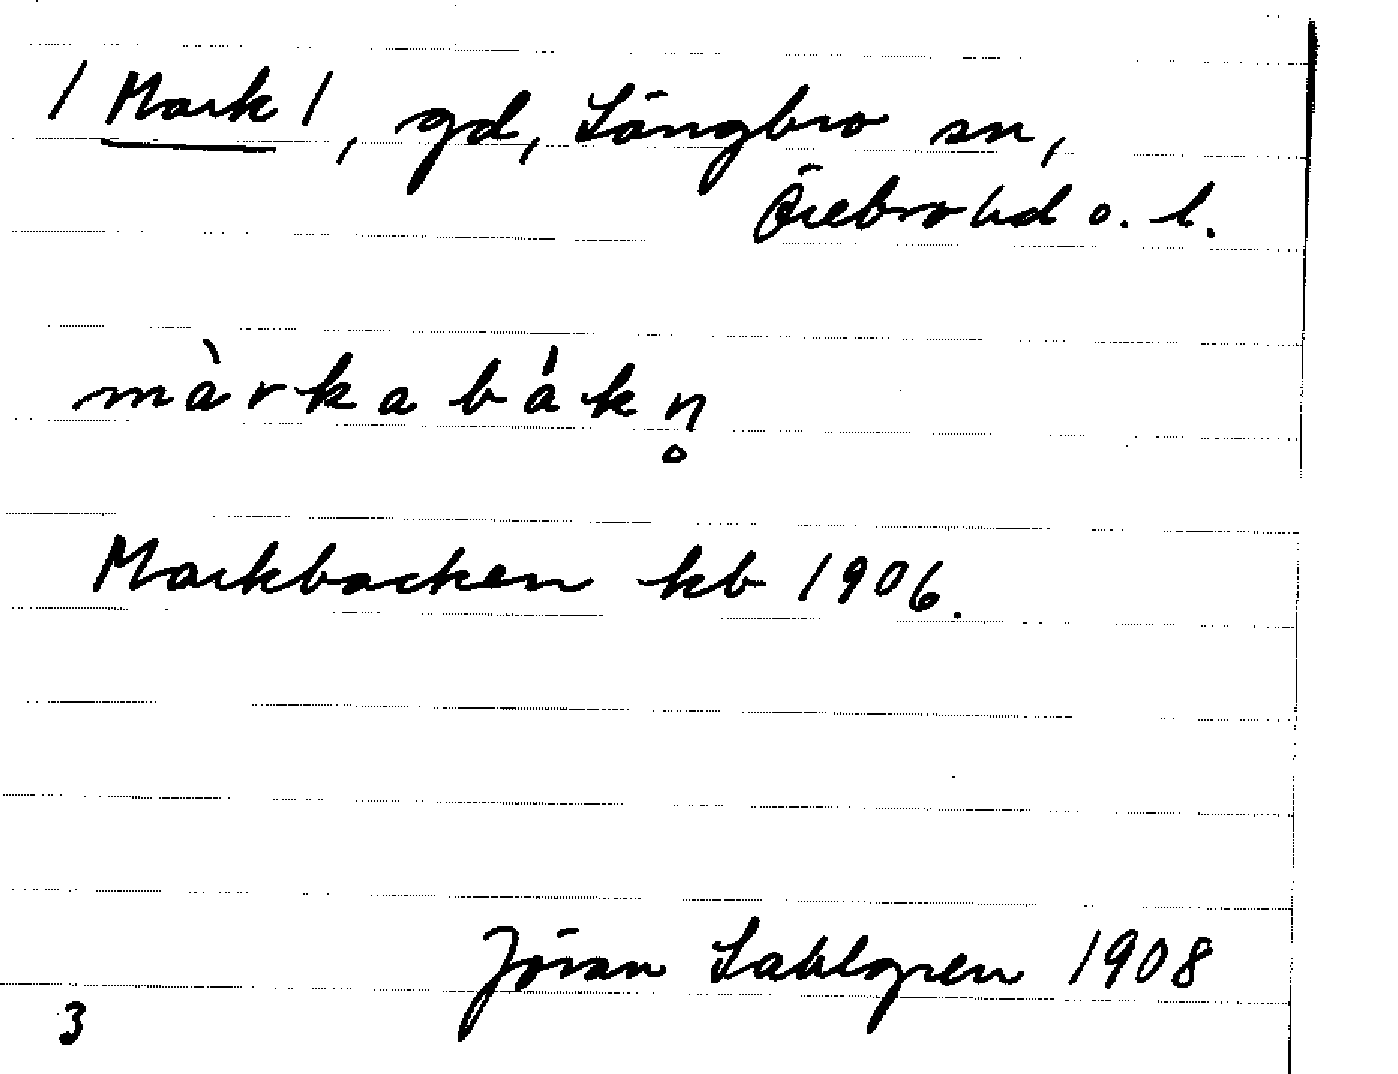 / Mark /, gd, Längbro sn,
Örebro hd o. l.
màrkabákn̥
Markbacken kb 1906.
Jöran Sahlgren 1908
3